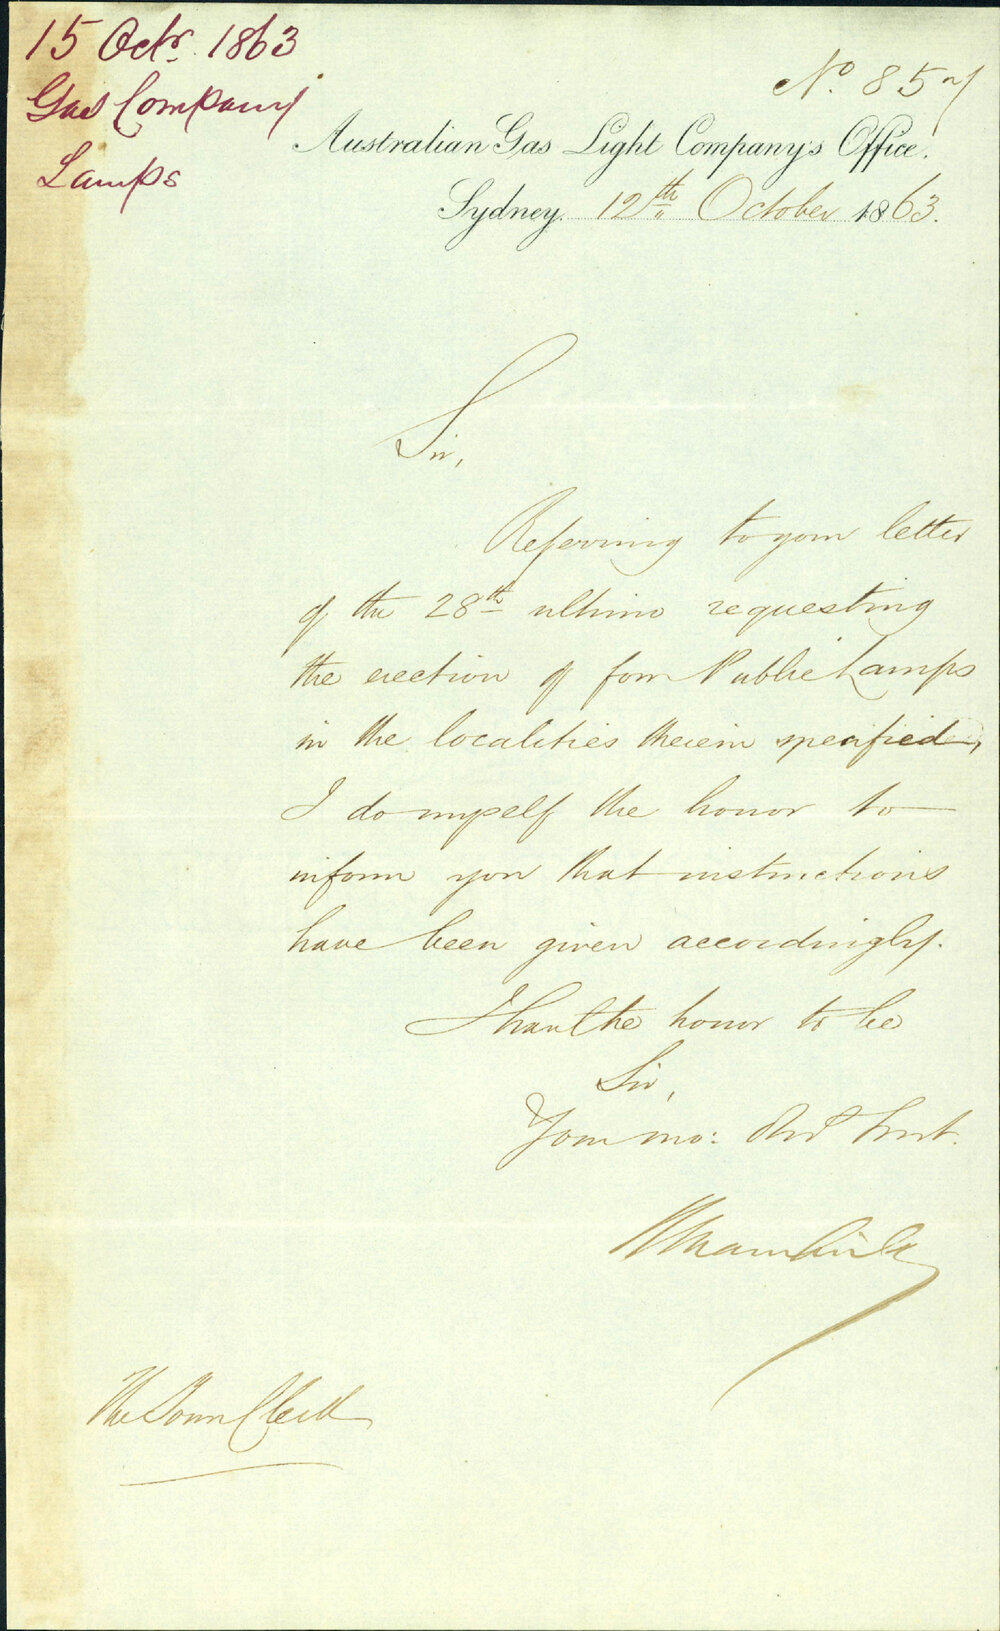 15 Octr. 1863
Gas Company
Lamps
No. 857
Australian Gas Light Company's Office.
Sydney. 12th October 1863.
Sir,
Referring to your letter
of the 28th ultimo requesting
the erection of four Public Lamps
in the localities therein specified,
I do myself the honor to
inform you that instructions
have been given accordingly.
I have the honor to be
Sir,
Your mo: Obdt Servt.
The Town Clerk